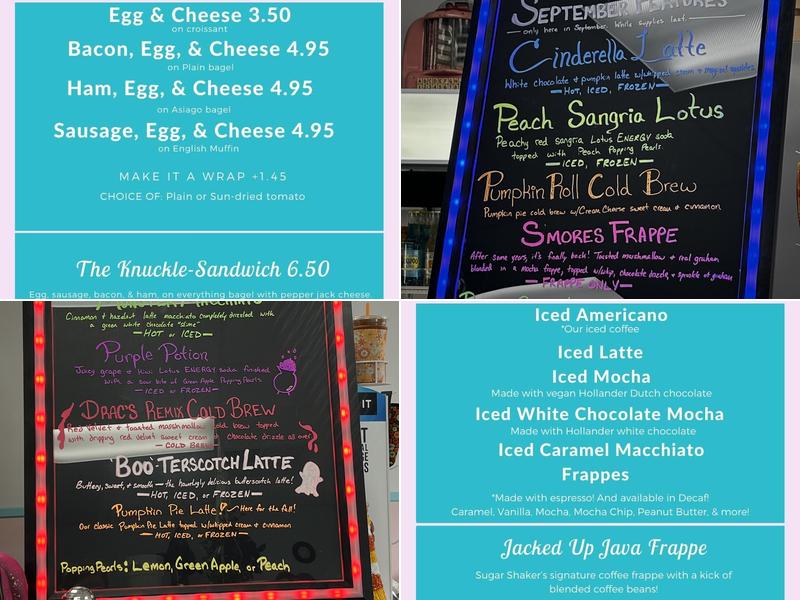 Egg & Cheese 3.50
on croissant
Bacon, Egg, & Cheese 4.95
on Plain bagel
Ham, Egg, & Cheese 4.95
on Asiago bagel
Sausage, Egg, & Cheese 4.95
on English Muffin
MAKE IT A WRAP +1.45
CHOICE OF: Plain or Sun-dried tomato
The Knuckle-Sandwich 6.50
Egg, sausage, bacon, & ham, on everything bagel with pepper jack cheese
SEPTEMBER FEATURES
only here in September. While supplies last.
Cinderella Latte
White chocolate & pumpkin latte w/whipped cream & magical sparkles
—HOT, ICED, FROZEN—
Peach Sangria Lotus
Peachy red sangria Lotus ENERGY soda
topped with Peach Popping Pearls.
—ICED, FROZEN—
Pumpkin Roll Cold Brew
Pumpkin pie cold brew w/Cream Cheese sweet cream & cinnamon
S'MORES FRAPPE
After some years, it's finally back! Toasted marshmallow & real graham
blended in a mocha frappe, topped w/whip, chocolate drizzle, & sprinkle of graham
—FRAPPE ONLY—
Cinnamon & hazelnut latte macchiato completely drizzled with
a green white chocolate "slime"
—HOT or ICED—
Purple Potion
Juicy grape & kiwi Lotus ENERGY soda finished
with a sour bite of Green Apple Popping Pearls
—ICED or FROZEN—
DRAC'S REMIX COLD BREW
Red velvet & toasted marshmallow cold brew topped
with dripping red velvet sweet cream & chocolate drizzle all over
—COLD BREW
'BOO'TERSCOTCH LATTE
Buttery, sweet, & smooth — the hauntingly delicious butterscotch latte!
—HOT, ICED, or FROZEN—
Pumpkin Pie Latte Here for the fall!
Our classic Pumpkin Pie Latte topped w/whipped cream & cinnamon
—HOT, ICED, or FROZEN—
Popping Pearls: Lemon, Green Apple, or Peach
IT
Iced Americano
*Our iced coffee
Iced Latte
Iced Mocha
Made with vegan Hollander Dutch chocolate
Iced White Chocolate Mocha
Made with Hollander white chocolate
Iced Caramel Macchiato
Frappes
*Made with espresso! And available in Decaf!
Caramel, Vanilla, Mocha, Mocha Chip, Peanut Butter, & more!
Jacked Up Java Frappe
Sugar Shaker's signature coffee frappe with a kick of
blended coffee beans!